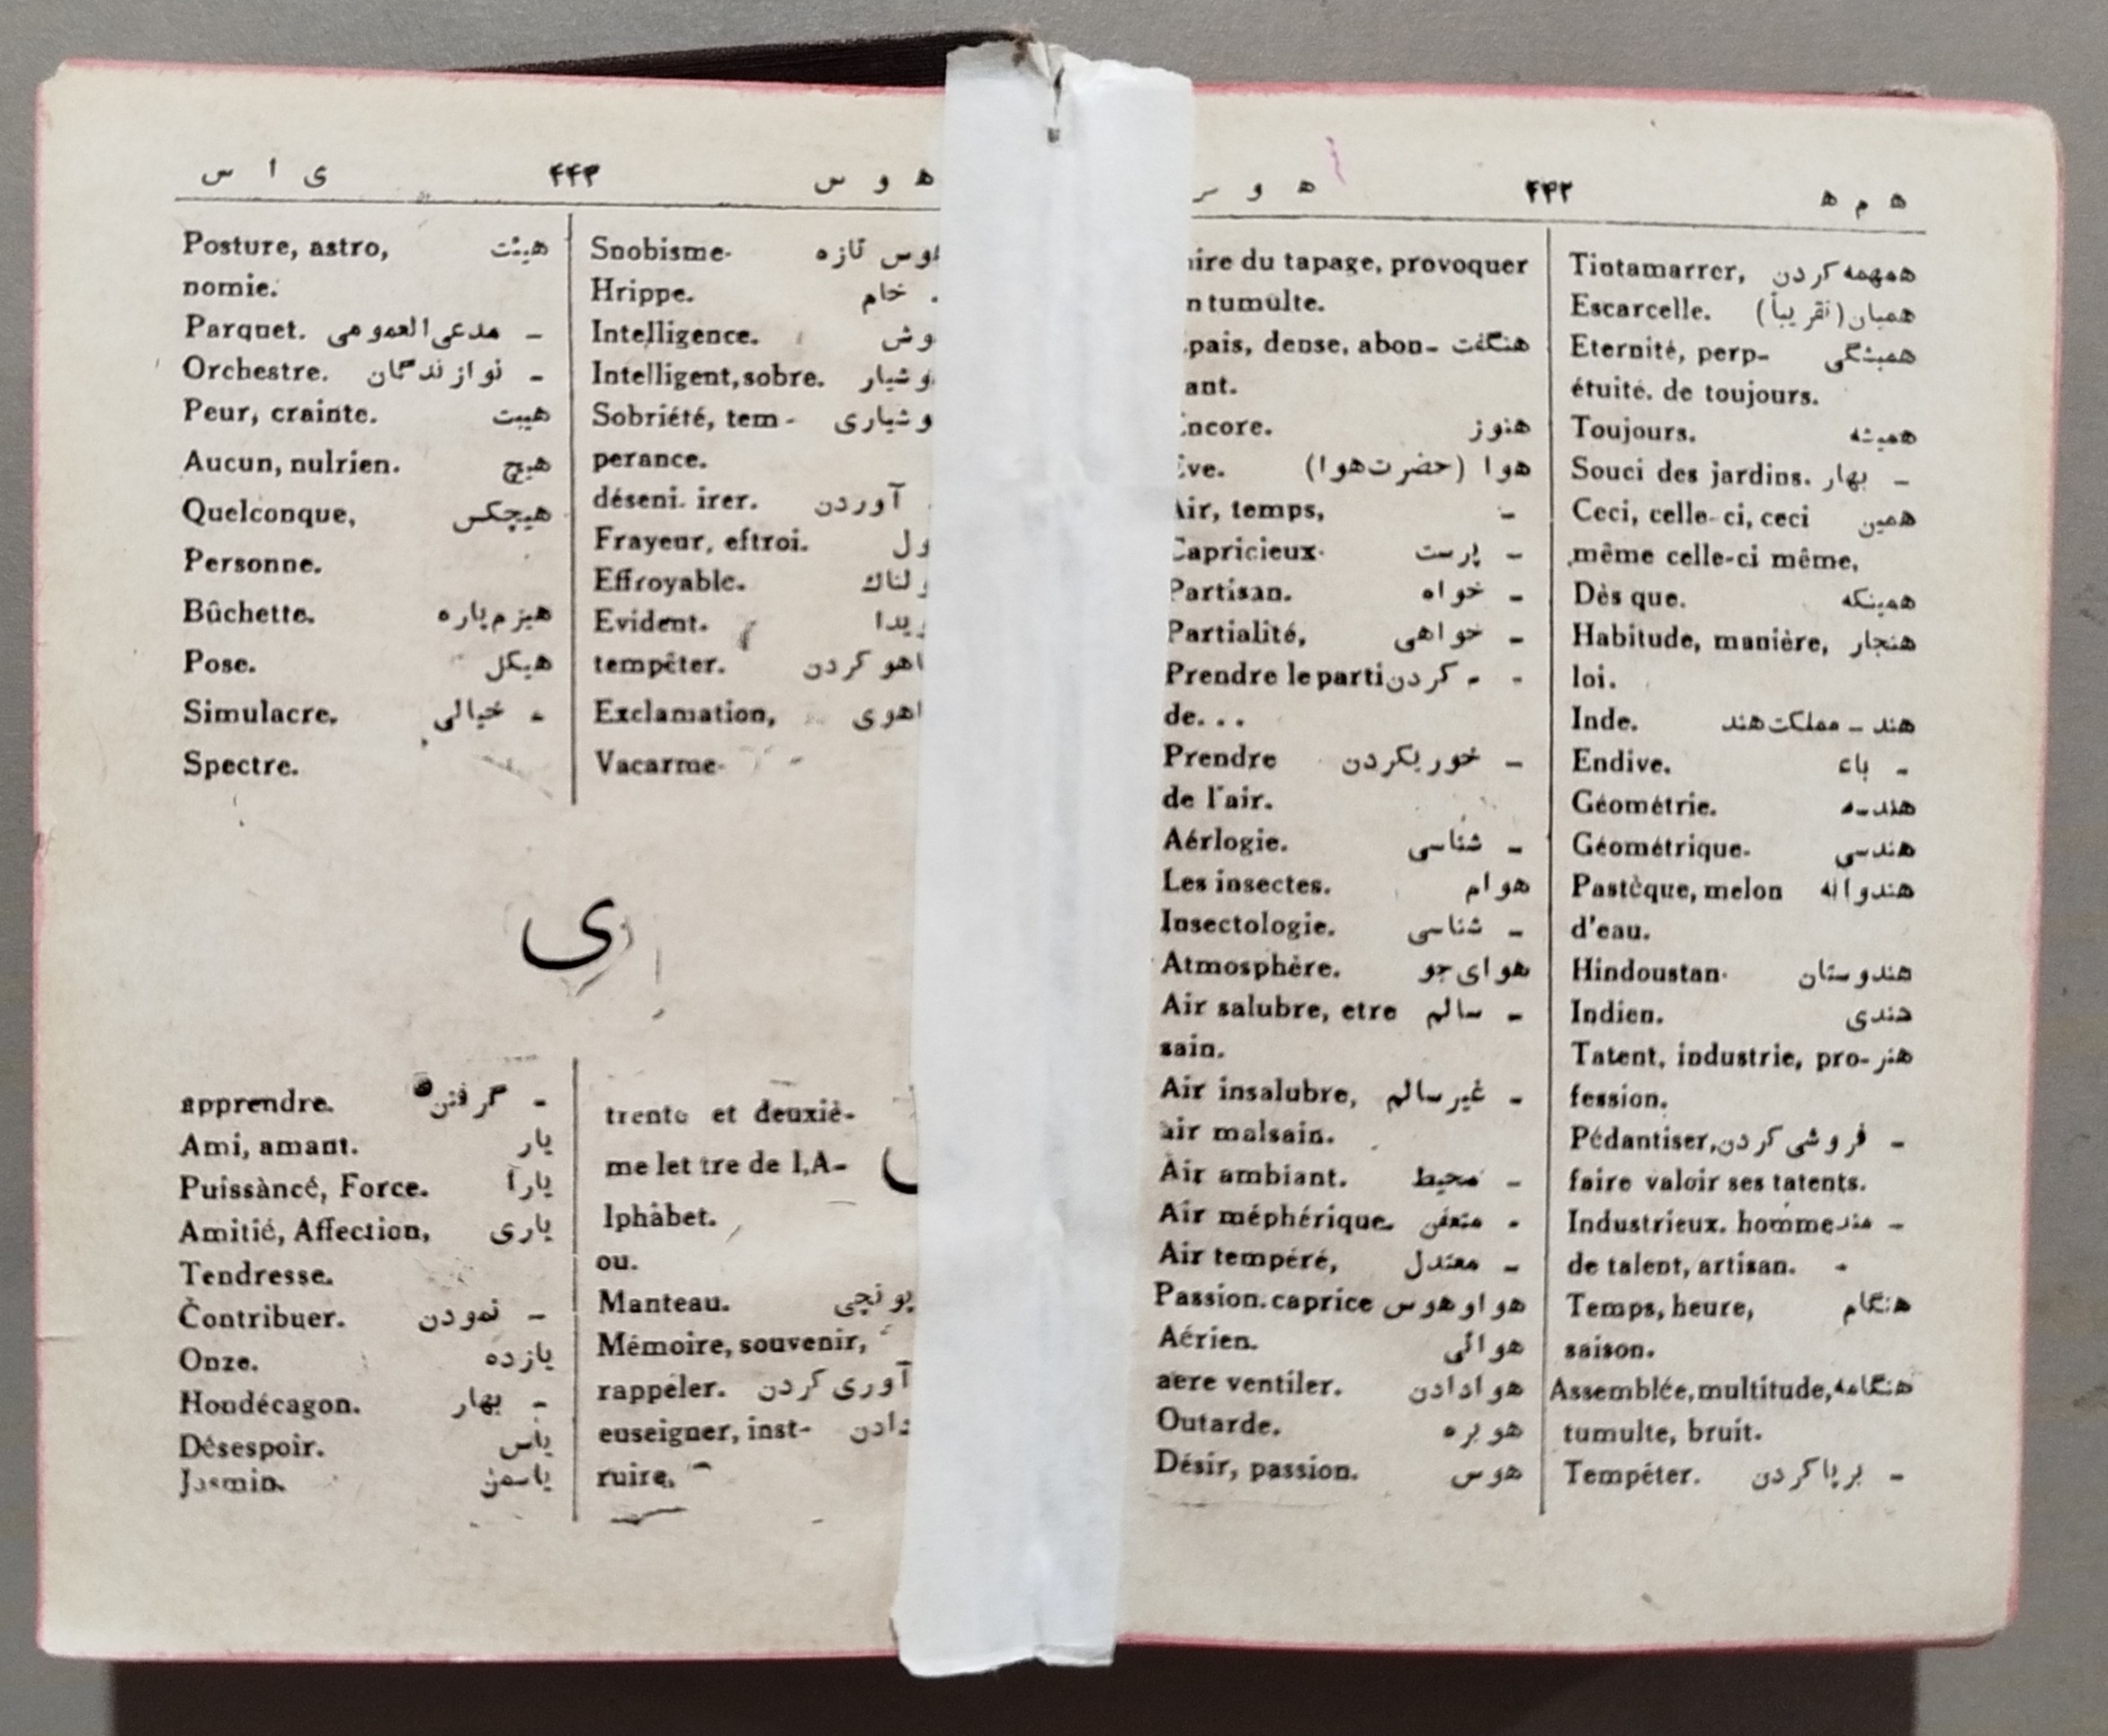 ه م ه ۴۴۲ ه و
همهمه کردن Tintamarrer,
همیان (تقریباً) Escarcelle.
همیشگی Eternité, perp-
étuité. de toujours.
همیشه Toujours.
- بهار Souci des jardins.
همین Ceci, celle-ci, ceci
même celle-ci même,
همینکه Dès que.
هنجار Habitude, manière,
loi.
هند - مملکت هند Inde.
- باء Endive.
هندسه Géométrie.
هندسی Géométrique.
هندوانه Pastèque, melon
d'eau.
هندوستان Hindoustan.
هندی Indien.
هنر Tatent, industrie, pro-
fession.
- فروشی کردن Pédantiser,
faire valoir ses tatents.
- مند Industrieux. homme
de talent, artisan.
هنگام Temps, heure,
saison.
هنگامه Assemblée, multitude,
tumulte, bruit.
- برپا کردن Tempéter.
du tapage, provoquer
tumulte.
هنگفت dense, abon-
هنوز
هوا (حضرت هوا)
- Air, temps,
- پرست Capricieux.
- خواه Partisan.
- خواهی Partialité,
- - کردن Prendre le parti
de...
- خوریکردن Prendre
de l'air.
- شناسی Aérlogie.
هوام Les insectes.
- شناسی Insectologie.
هوای جو Atmosphère.
- سالم Air salubre, etre
sain.
- غیر سالم Air insalubre,
air malsain.
- محیط Air ambiant.
- متعفن Air méphérique.
- معتدل Air tempéré,
هوا و هوس Passion. caprice
هوائی Aérien.
هوا دادن aere ventiler.
هوبره Outarde.
هوس Désir, passion.
ه و س ۴۴۳ ی ا س
تازه Snobisme.
خام Hrippe.
Intelligence.
Intelligent, sobre.
Sobriété, tem-
perance.
آوردن irer.
Frayeur, eftroi.
Effroyable.
Evident.
کردن tempêter.
Exclamation,
Vacarme.
هیئت Posture, astro,
nomie.
- مدعی العمومی Parquet.
- نوازندگان Orchestre.
هیبت Peur, crainte.
هیچ Aucun, nulrien.
هیچکس Quelconque,
Personne.
هیزم پاره Bûchette.
هیکل Pose.
- خیالی Simulacre.
Spectre.
ی
trente et deuxiè-
me let tre de l,A-
lphâbet.
ou.
Manteau.
Mémoire, souvenir,
آوری کردن rappéler.
دادن euseigner, inst-
ruire.
- گرفتن apprendre.
یار Ami, amant.
یارا Puissàncé, Force.
یاری Amitié, Affection,
Tendresse.
- نمودن Contribuer.
یازده Onze.
- بهار Hondécagon.
یاس Désespoir.
یاسمن Jasmin.